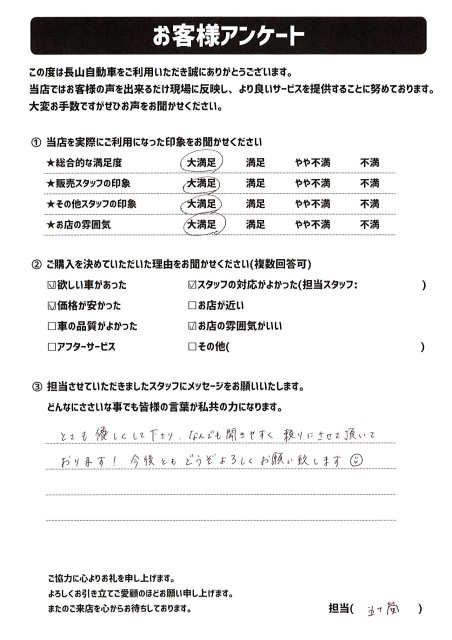 お客様アンケート
この度は長山自動車をご利用いただき誠にありがとうございます。
当店ではお客様の声を出来るだけ現場に反映し、より良いサービスを提供することに努めております。
大変お手数ですがぜひお声をお聞かせください。
① 当店を実際にご利用になった印象をお聞かせください
★総合的な満足度 大満足 満足 やや不満 不満
★販売スタッフの印象 大満足 満足 やや不満 不満
★その他スタッフの印象 大満足 満足 やや不満 不満
★お店の雰囲気 大満足 満足 やや不満 不満
② ご購入を決めていただいた理由をお聞かせください(複数回答可)
☑欲しい車があった ☑スタッフの対応がよかった(担当スタッフ: )
☑価格が安かった □お店が近い
□車の品質がよかった ☑お店の雰囲気がいい
□アフターサービス □その他( )
③ 担当させていただきましたスタッフにメッセージをお願いいたします。
どんなにささいな事でも皆様の言葉が私共の力になります。
とても優しくして下さり、なんでも聞きやすく頼りにさせて頂いて
おります! 今後ともどうぞよろしくお願い致します☺
ご協力に心よりお礼を申し上げます。
よろしくお引き立てご愛顧のほどお願い申し上げます。
またのご来店を心からお待ちしております。
担当( )